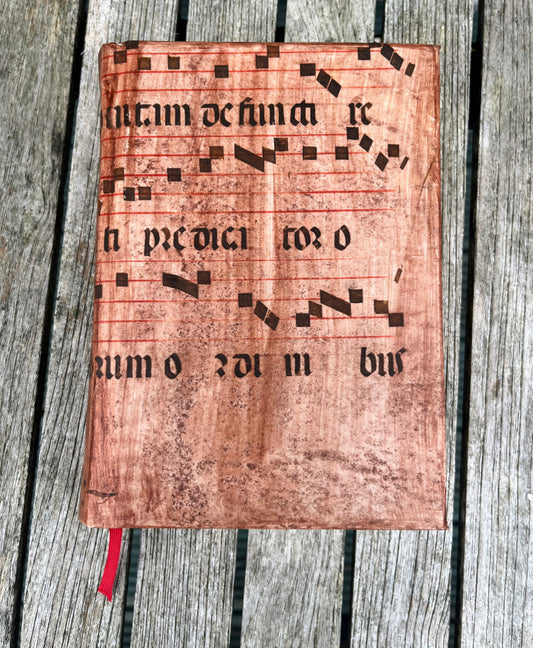 defuncti re
ti predica toro
rum o rdi ni bus